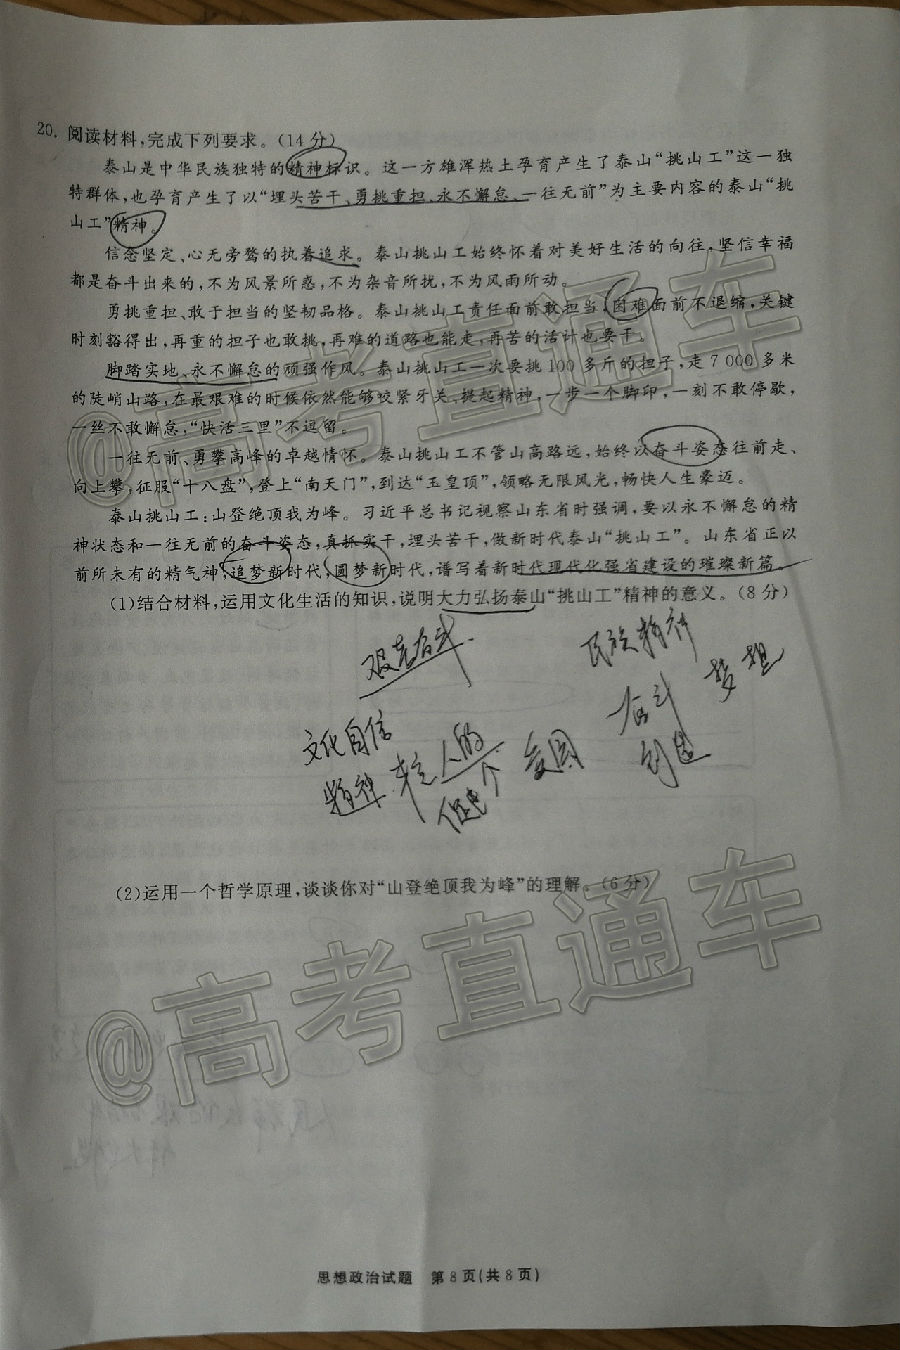 20. 阅读材料,完成下列要求。(14分)
泰山是中华民族独特的精神标识。这一方雄浑热土孕育产生了泰山“挑山工”这一独
特群体,也孕育产生了以“埋头苦干、勇挑重担、永不懈怠、一往无前”为主要内容的泰山“挑
山工”精神。
信念坚定、心无旁鹜的执着追求。泰山挑山工始终怀着对美好生活的向往,坚信幸福
都是奋斗出来的,不为风景所惑,不为杂音所扰,不为风雨所动。
勇挑重担、敢于担当的坚韧品格。泰山挑山工责任面前敢担当,困难面前不退缩,关键
时刻豁得出,再重的担子也敢挑,再难的道路也能走,再苦的活计也要干。
脚踏实地、永不懈怠的顽强作风。泰山挑山工一次要挑100多斤的担子,走7000多米
的陡峭山路,在最艰难的时候依然能够咬紧牙关、提起精神,一步一个脚印,一刻不敢停歇,
一丝不敢懈怠,“快活三里”不逗留。
一往无前、勇攀高峰的卓越情怀。泰山挑山工不管山高路远,始终以奋斗姿态往前走、
向上攀,征服“十八盘”,登上“南天门”,到达“玉皇顶”,领略无限风光,畅快人生豪迈。
泰山挑山工:山登绝顶我为峰。习近平总书记视察山东省时强调,要以永不懈怠的精
神状态和一往无前的奋斗姿态,真抓实干,埋头苦干,做新时代泰山“挑山工”。山东省正以
前所未有的精气神,追梦新时代,圆梦新时代,谱写着新时代现代化强省建设的璀璨新篇。
(1)结合材料,运用文化生活的知识,说明大力弘扬泰山“挑山工”精神的意义。(8分)
艰苦奋斗
民族精神
文化自信
爱国
奋斗
梦想
精神
人的
创造
(2)运用一个哲学原理,谈谈你对“山登绝顶我为峰”的理解。(6分)
@高考直通车
@高考直通车
思想政治试题 第8页(共8页)